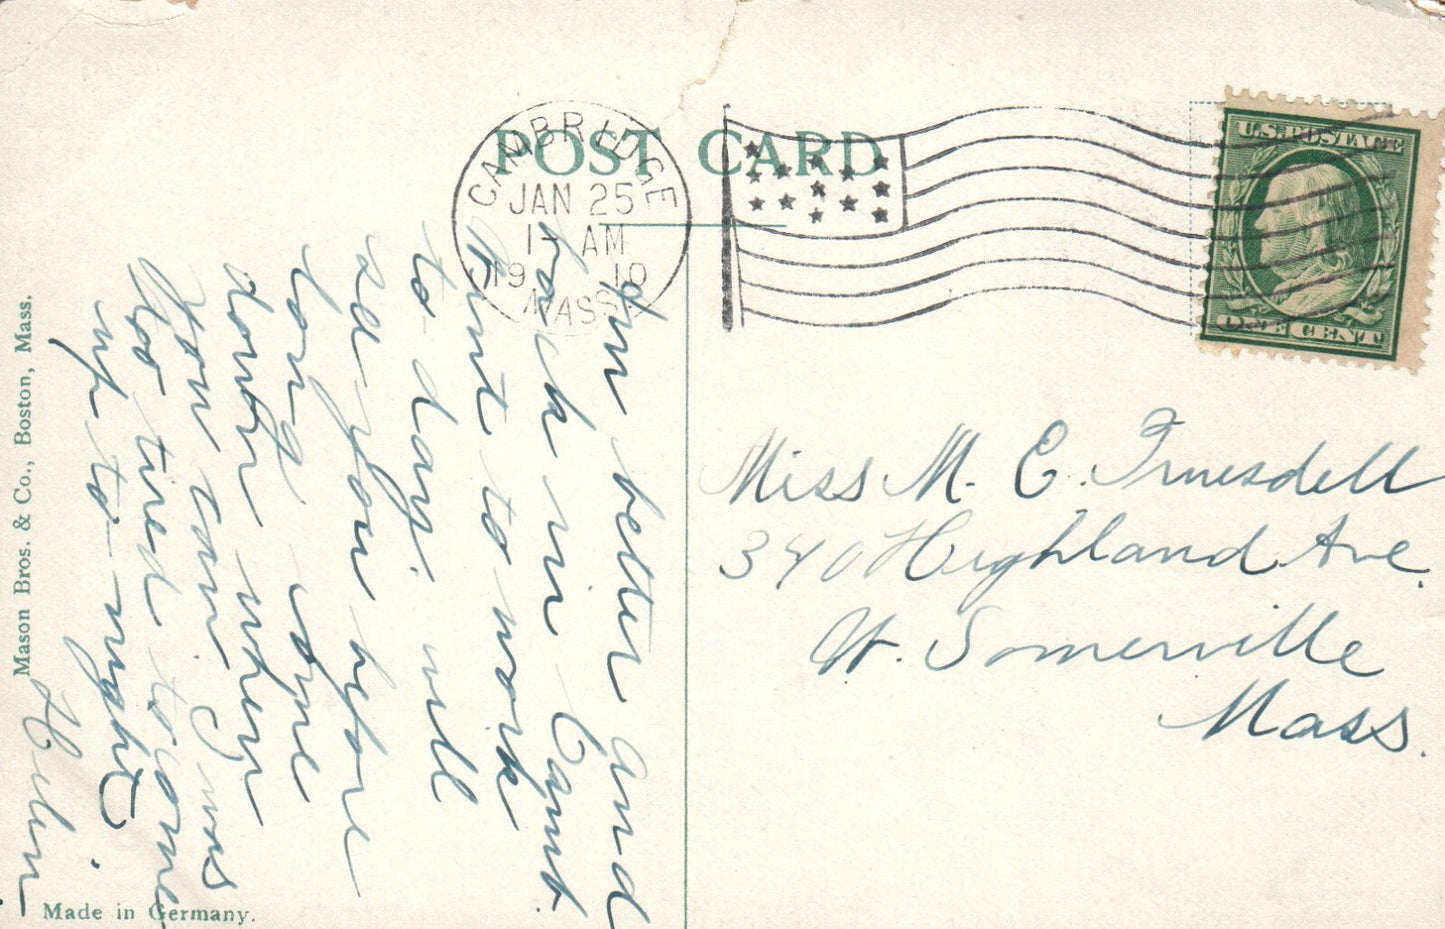 POST CARD
CAMBRIDGE
JAN 25
1- AM
1910
MASS.
U.S. POSTAGE
ONE CENT
Miss M. E. Truesdell
340 Highland Ave.
W. Somerville
Mass.
Am better and
back in Camb.
Went to work
to day. will
se you before
long come
down when
you can. I was
too tired to come
up to-night
Helen
Mason Bros. & Co., Boston, Mass.
Made in Germany.